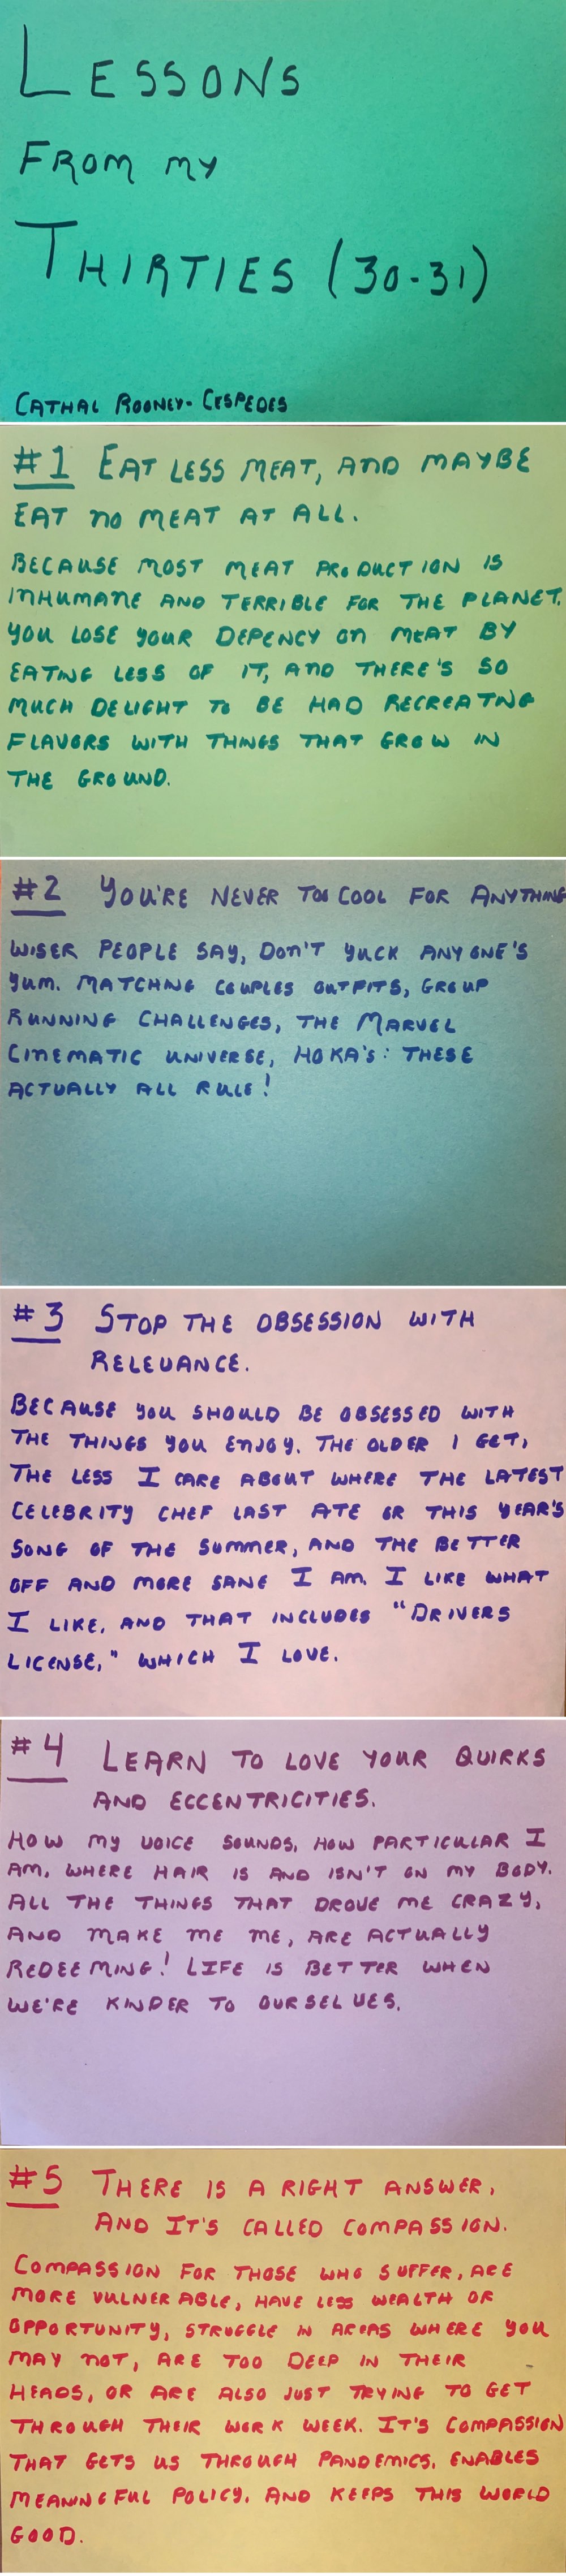 LESSONS
FROM MY
THIRTIES (30-31)
CATHAL ROONEY-CESPEDES
#1 EAT LESS MEAT, AND MAYBE
EAT NO MEAT AT ALL.
BECAUSE MOST MEAT PRODUCTION IS
INHUMANE AND TERRIBLE FOR THE PLANET.
YOU LOSE YOUR DEPENCY ON MEAT BY
EATING LESS OF IT, AND THERE'S SO
MUCH DELIGHT TO BE HAD RECREATING
FLAVORS WITH THINGS THAT GROW IN
THE GROUND.
#2 YOU'RE NEVER TOO COOL FOR ANYTHING
WISER PEOPLE SAY, DON'T YUCK ANYONE'S
YUM. MATCHING COUPLES OUTFITS, GROUP
RUNNING CHALLENGES, THE MARVEL
CINEMATIC UNIVERSE, HOKA'S: THESE
ACTUALLY ALL RULE!
#3 STOP THE OBSESSION WITH
RELEVANCE.
BECAUSE YOU SHOULD BE OBSESSED WITH
THE THINGS YOU ENJOY. THE OLDER I GET,
THE LESS I CARE ABOUT WHERE THE LATEST
CELEBRITY CHEF LAST ATE OR THIS YEAR'S
SONG OF THE SUMMER, AND THE BETTER
OFF AND MORE SANE I AM. I LIKE WHAT
I LIKE, AND THAT INCLUDES "DRIVERS
LICENSE," WHICH I LOVE.
#4 LEARN TO LOVE YOUR QUIRKS
AND ECCENTRICITIES.
HOW MY VOICE SOUNDS, HOW PARTICULAR I
AM, WHERE HAIR IS AND ISN'T ON MY BODY.
ALL THE THINGS THAT DROVE ME CRAZY,
AND MAKE ME ME, ARE ACTUALLY
REDEEMING! LIFE IS BETTER WHEN
WE'RE KINDER TO OURSELVES.
#5 THERE IS A RIGHT ANSWER,
AND IT'S CALLED COMPASSION.
COMPASSION FOR THOSE WHO SUFFER, ARE
MORE VULNERABLE, HAVE LESS WEALTH OR
OPPORTUNITY, STRUGGLE IN AREAS WHERE YOU
MAY NOT, ARE TOO DEEP IN THEIR
HEADS, OR ARE ALSO JUST TRYING TO GET
THROUGH THEIR WORK WEEK. IT'S COMPASSION
THAT GETS US THROUGH PANDEMICS, ENABLES
MEANINGFUL POLICY, AND KEEPS THIS WORLD
GOOD.